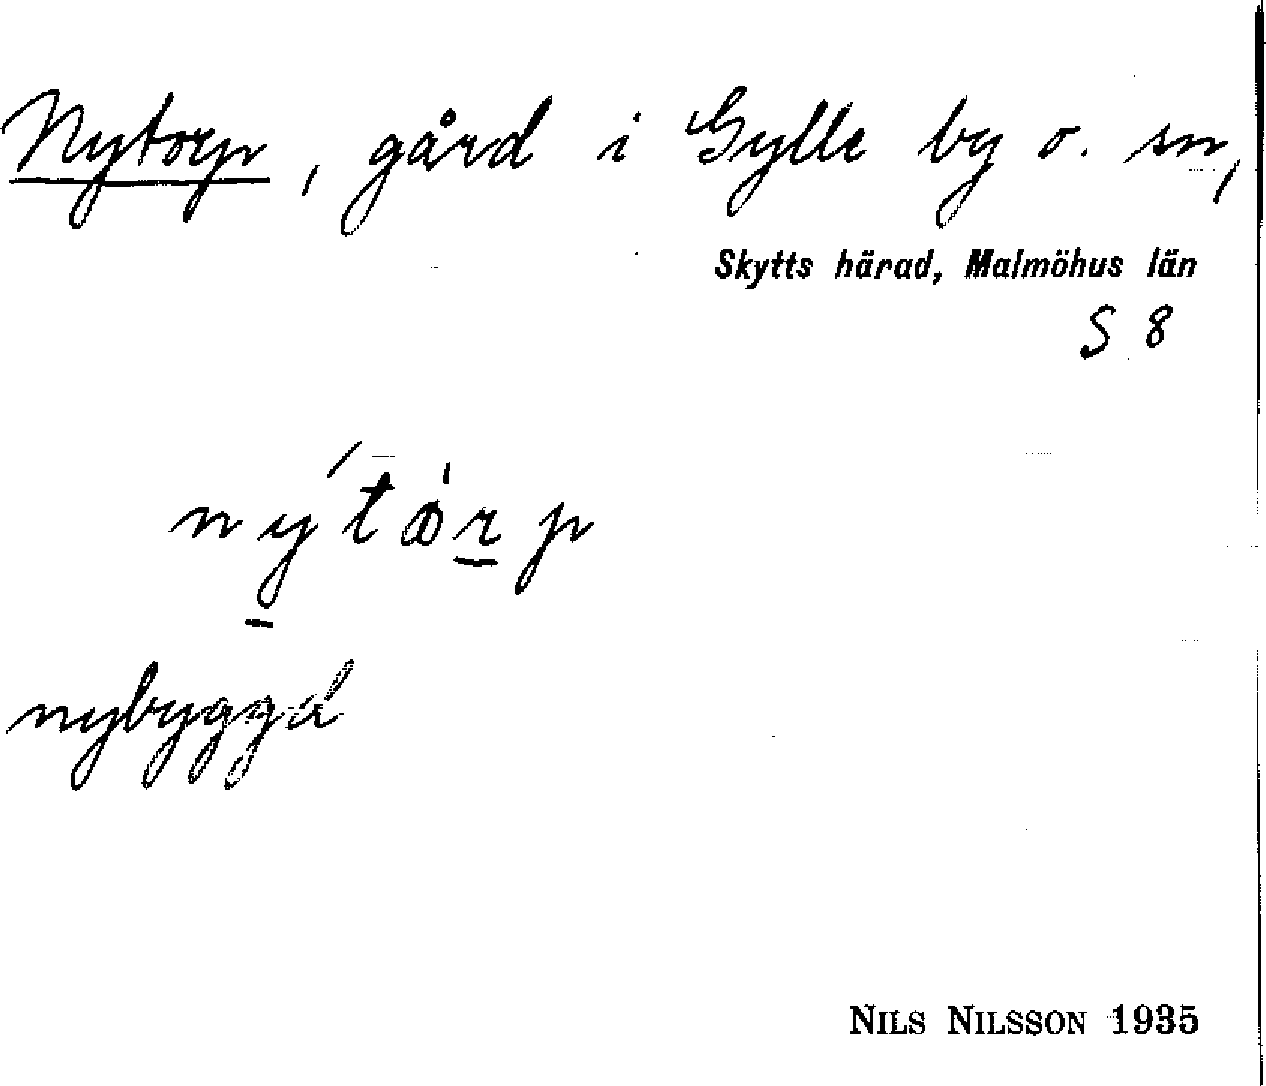 Nytorp, gård i Gylle by o. sn,
Skytts härad, Malmöhus län
S 8
nýtó̀rp
nybyggd
NILS NILSSON 1935